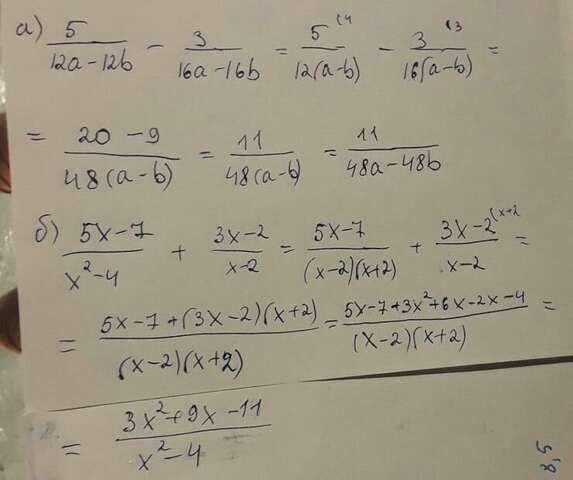 а) 5/(12a-12b) - 3/(16a-16b) = 5(4/(12(a-b)) - 3(3/(16(a-b)) =
= (20-9)/(48(a-b)) = 11/(48(a-b)) = 11/(48a-48b)
б) (5x-7)/(x²-4) + (3x-2)/(x-2) = (5x-7)/((x-2)(x+2)) + (3x-2)(x+2/(x-2) =
= (5x-7+(3x-2)(x+2))/((x-2)(x+2)) = (5x-7+3x²+6x-2x-4)/((x-2)(x+2)) =
= (3x²+9x-11)/(x²-4)
8,5